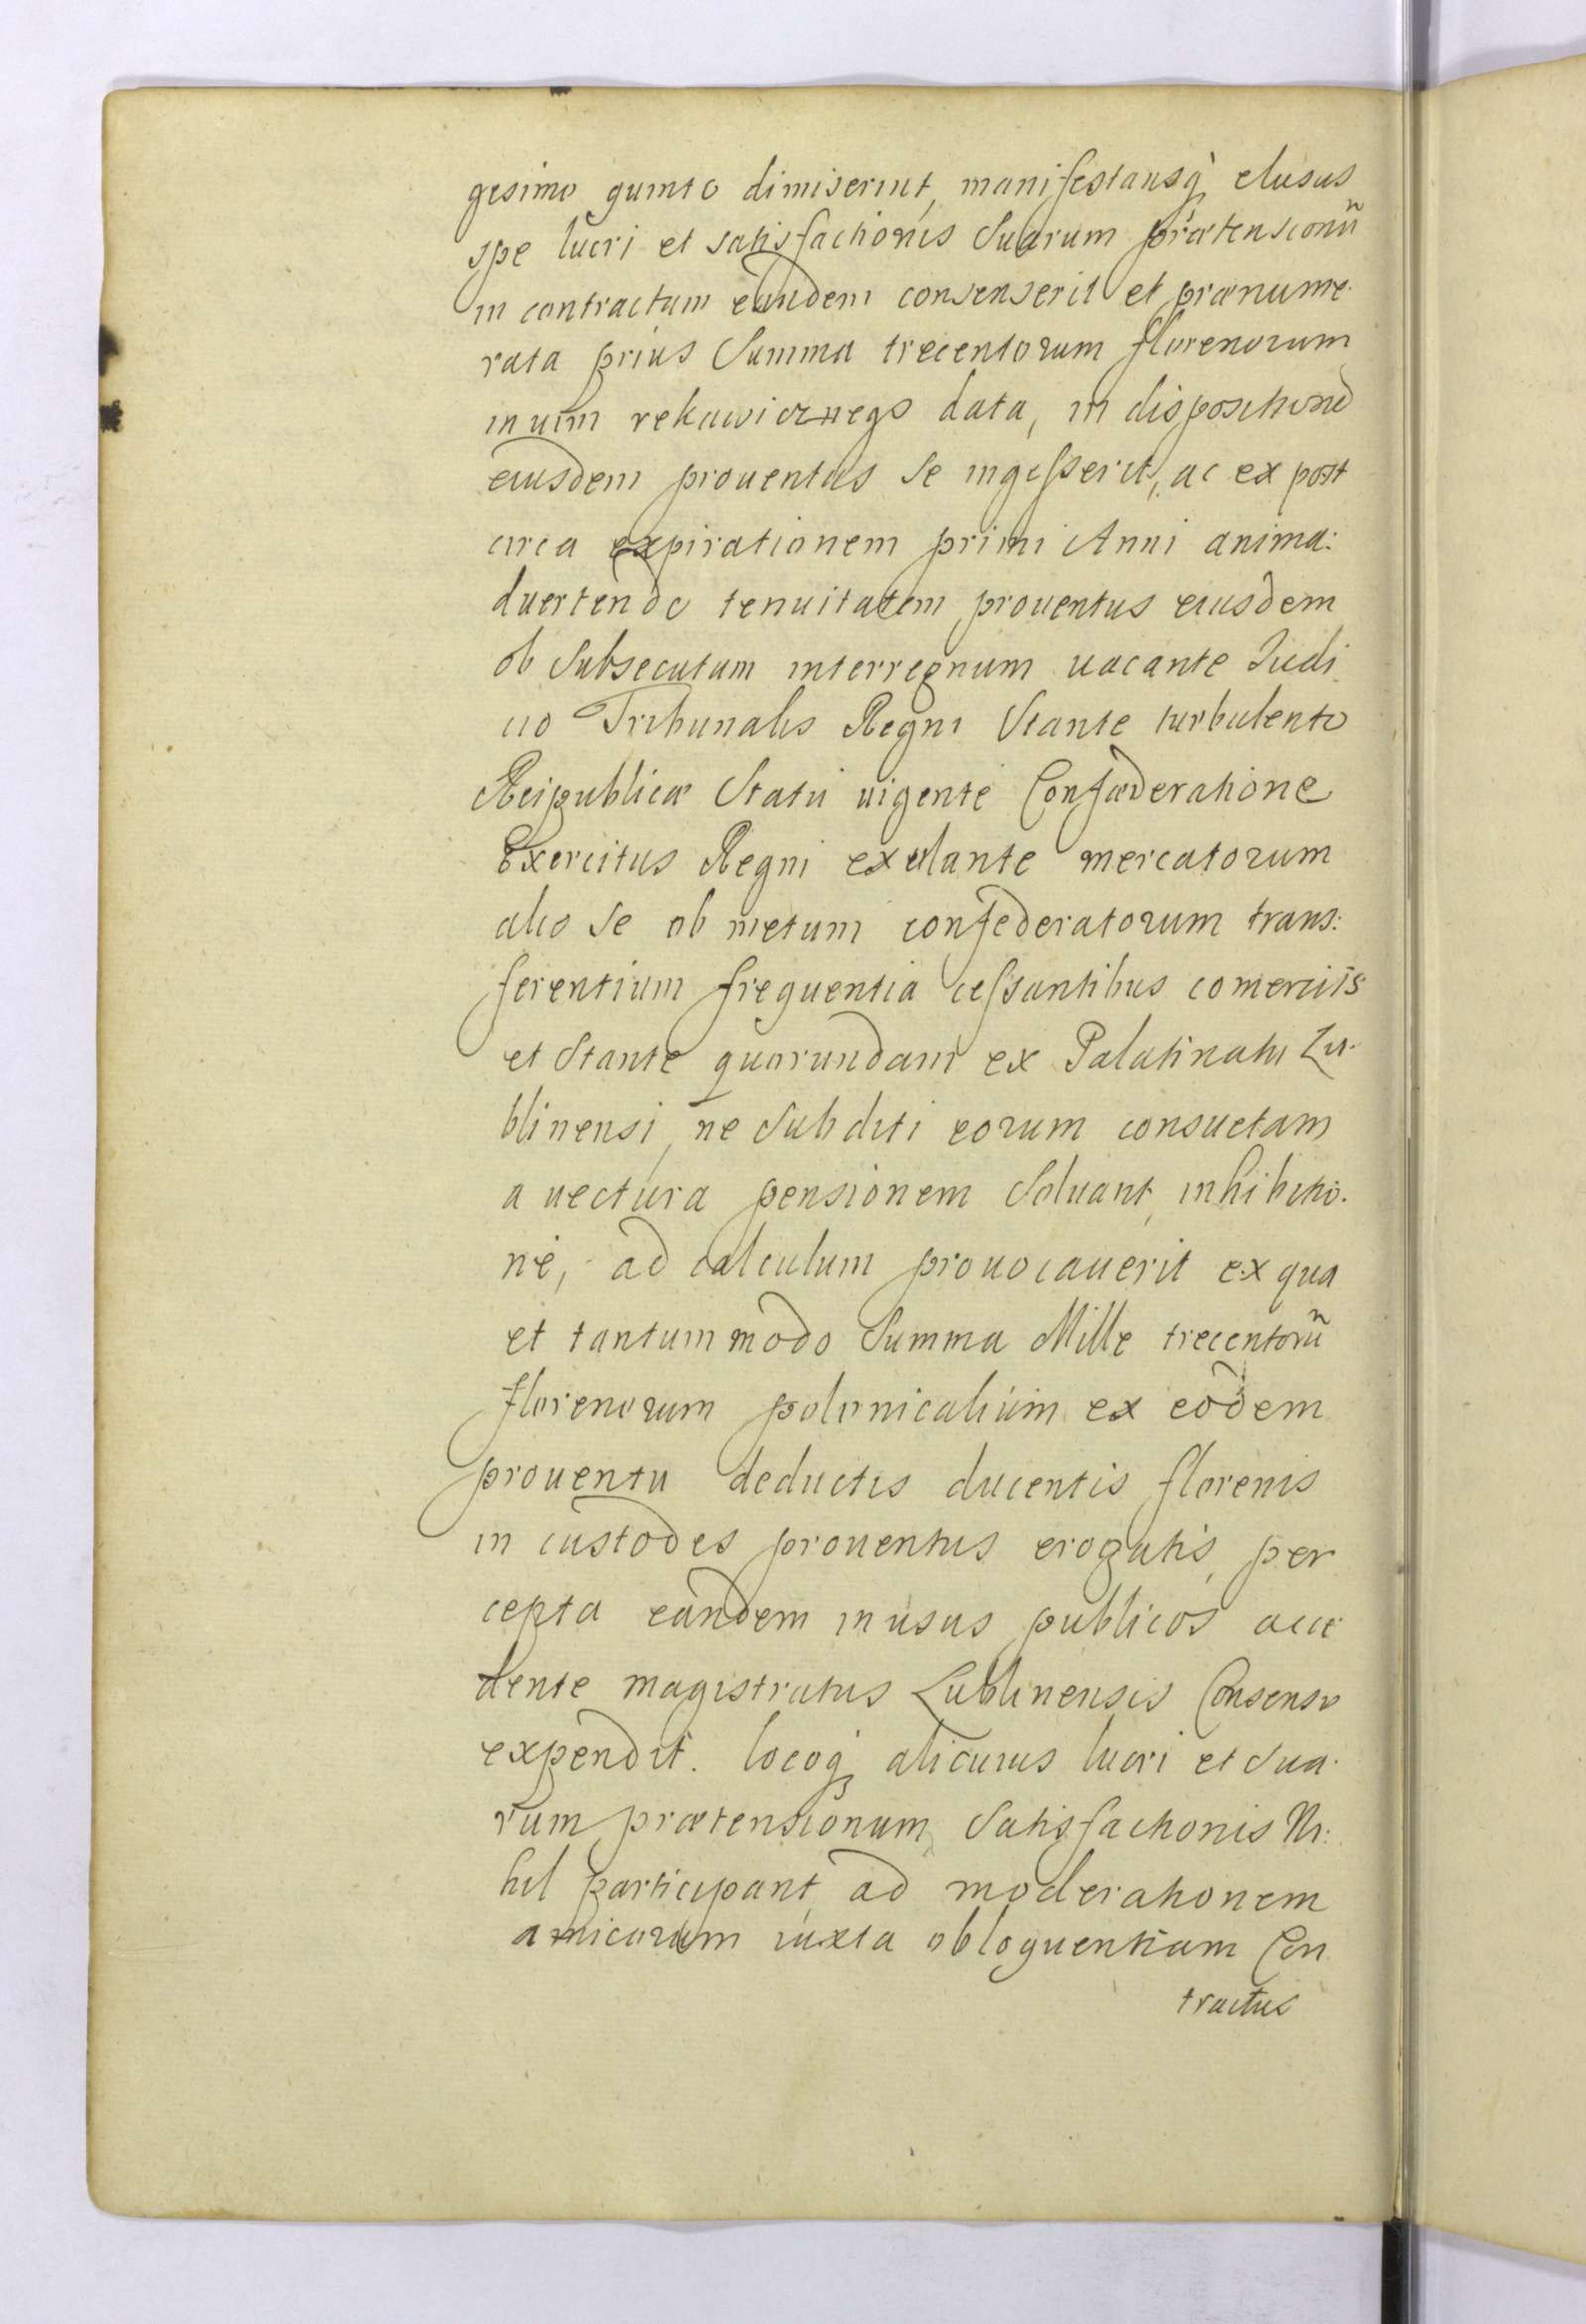 gesimo quinto dimiserint, manifestansq̀ elusus
spe lucri et satisfactionis Suarum prætensionũ
in contractum eundem consenserit et prænume.
rata prius Summa trecentorum florenorum
in uim rekawicznego data, in dispositione
eiusdem prouentus Se ingesserit, ac ex post
circa expirationem primi Anni anima:
duertendo tenuitatem prouentus eiusdem
ob Subsecutum interregnum uacante Iudi
cio Tribunalis Regni Stante turbulento
Reipublicæ Statu uigente Confæderatione
Exercitus Regni exulante mercatorum
alio Se ob metum confederatorum trans:
ferentium frequentia cessantibus comerciis
et Stante quorundam ex Palatinatu Lu.
blinensi, ne Subditi eorum consuetam
a uectura pensionem Soluant, inhibitio.
ne, ad calculum prouocauerit ex qua
et tantummodo Summa Mille trecentorũ
florenorum polonicalium ex eodem
prouentu deductis ducentis florenis
in custodes prouentus erogatis, per
cepta eandem in usus publicos acce
dente magistratus Lublinensis Consensu
expendit. locoq; alicuius lucri et Sua.
rum prætensionum Satisfactionis Ni:
hil participant, ad moderationem
amicorum iuxta obloquentiam Con
tractus